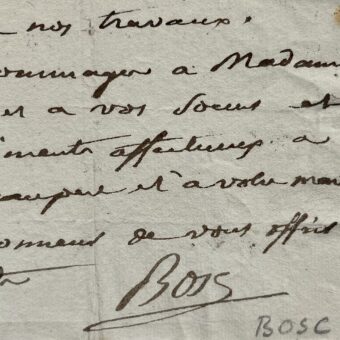 nos travaux.
hommages à Madam
et a vos soeurs et
iments affectueux a
et à votre mar
honneur de vous offrir
Bosc
BOSC